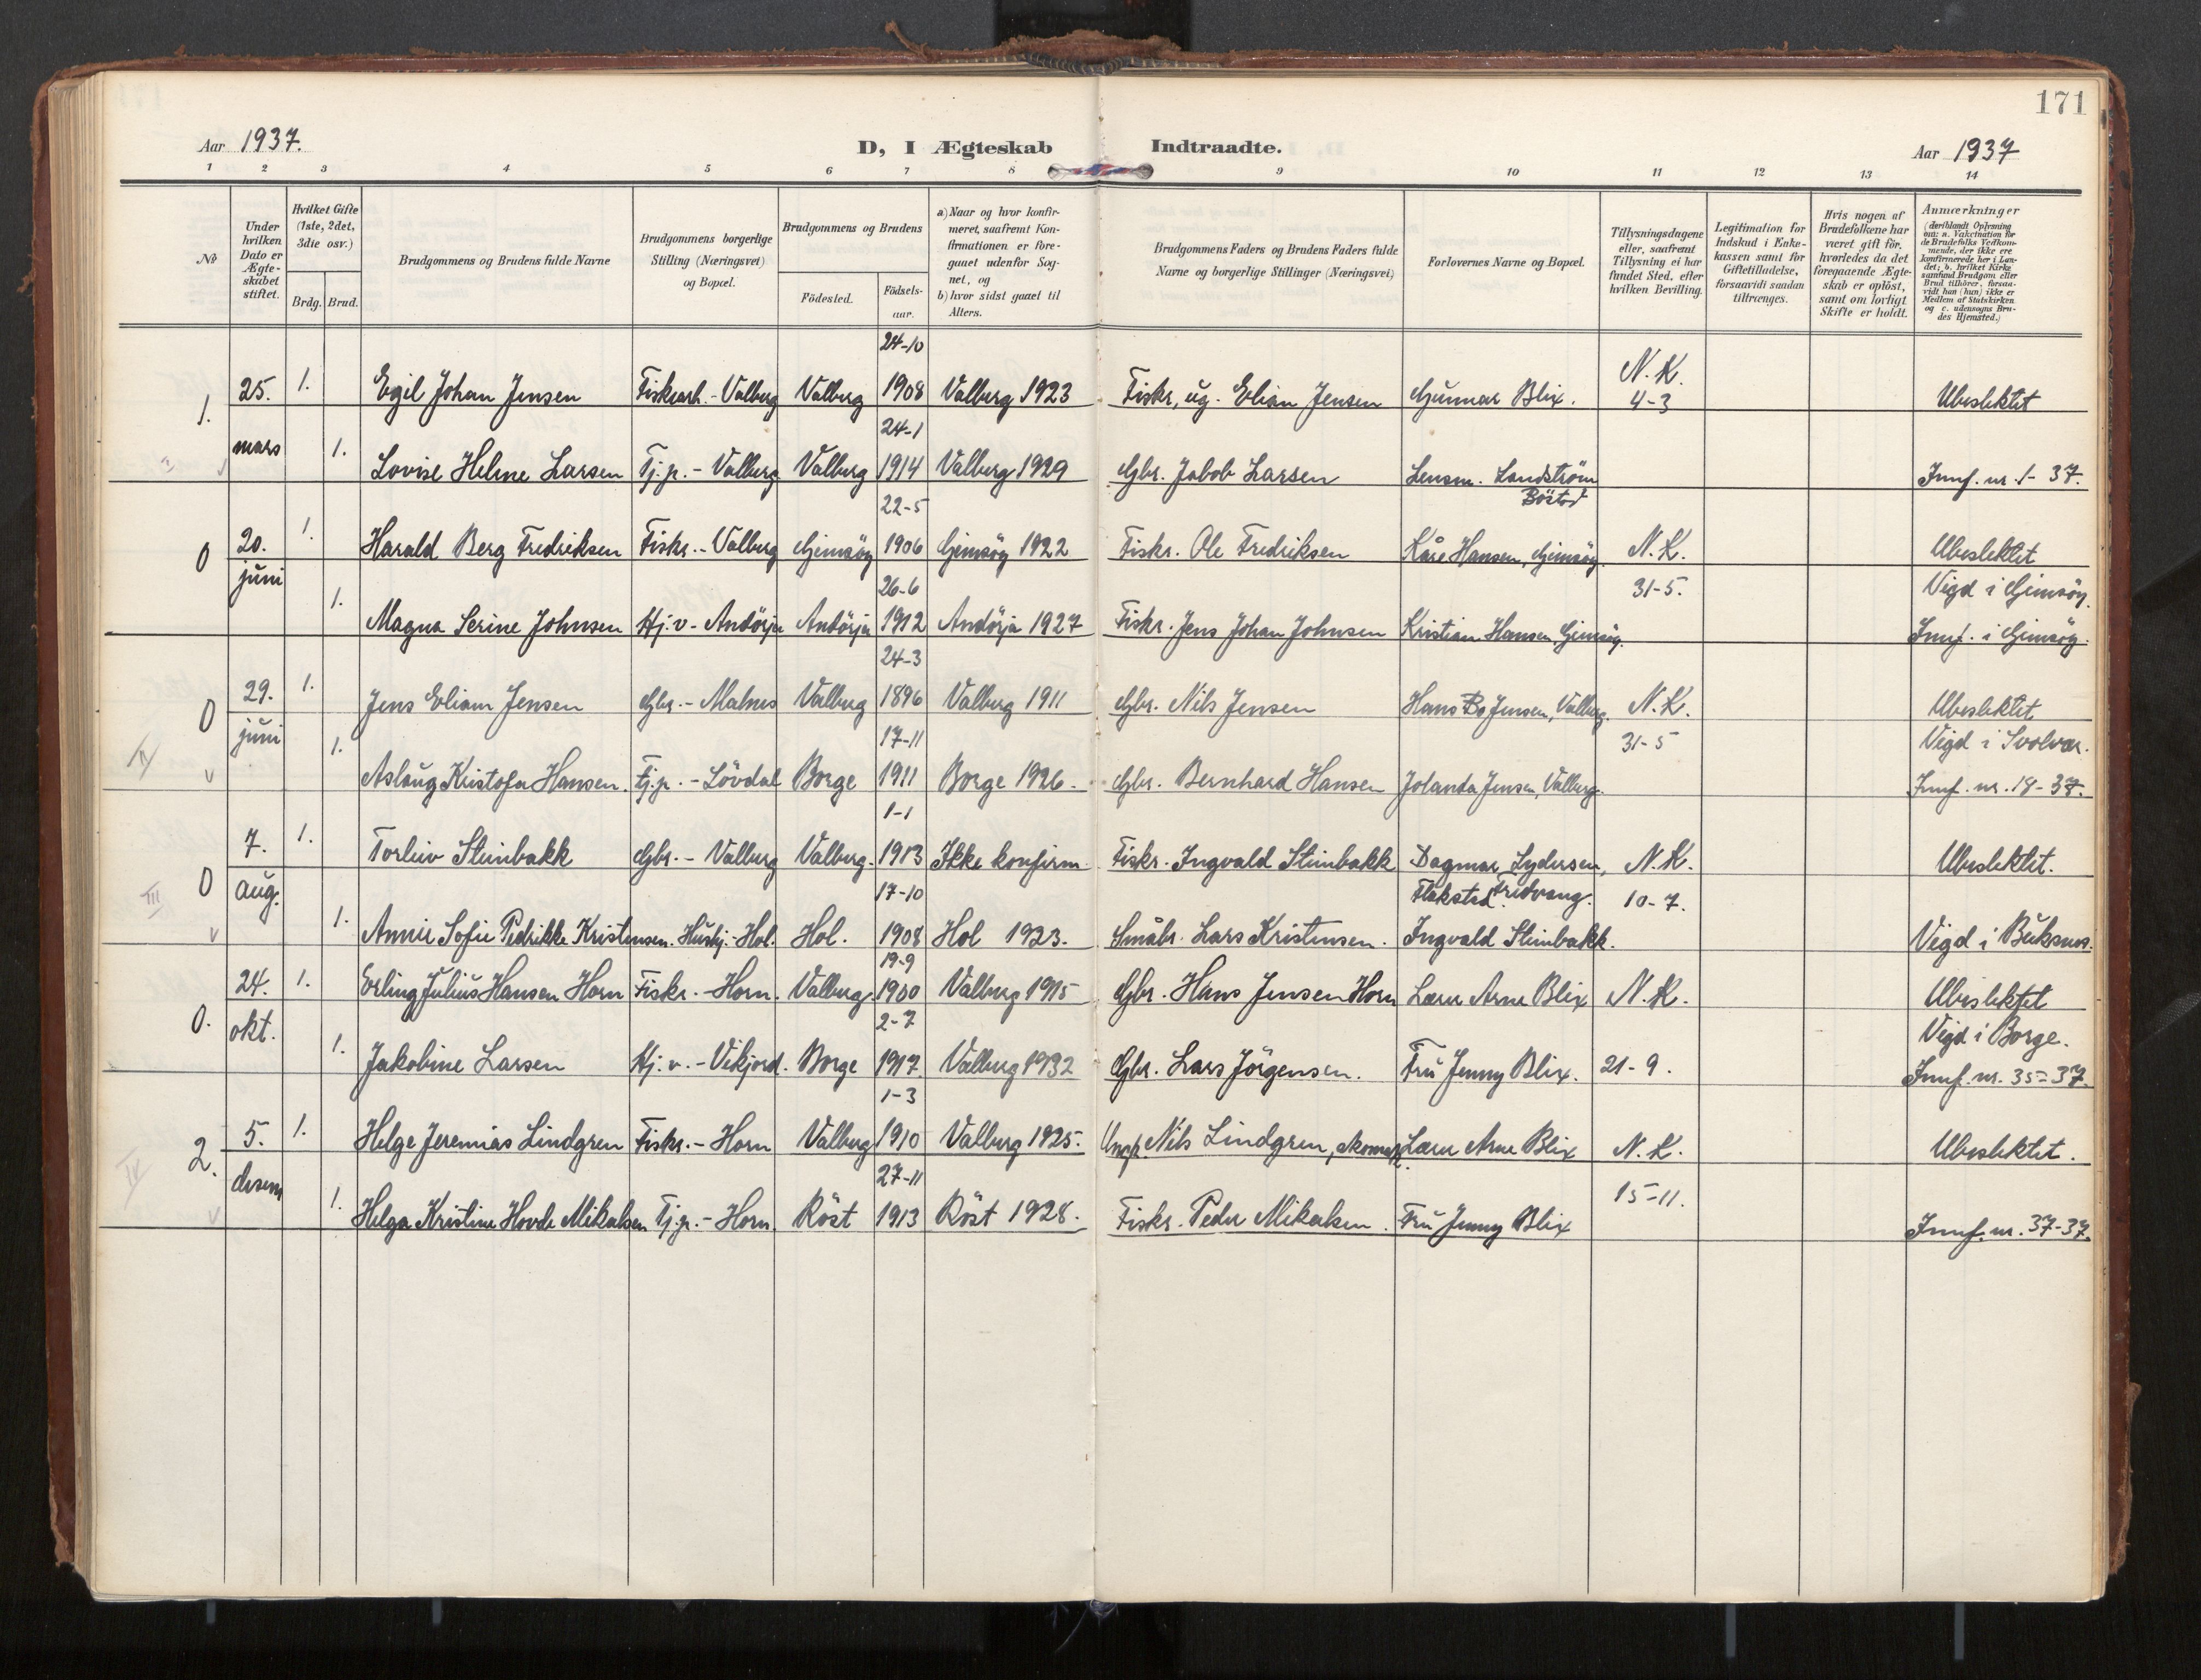 171
Aar 1937.
D, I Ægteskab Indtraadte.
Aar 1937
1 2 3 4 5 6 7 8 9 10 11 12 13 14
No
Under hvilken Dato er Ægte-skabet stiftet.
Hvilket Gifte (1ste, 2det, 3die osv.)
Brdg. Brud.
Brudgommens og Brudens fulde Navne
Brudgommens borgerlige Stilling (Næringsvei) og Bopæl.
Brudgommens og Brudens
Födested.
Födsels-aar.
a) Naar og hvor konfir-meret, saafremt Kon-firmationen er fore-gaaet udenfor Sog-net, og
b) hvor sidst gaaet til Alters.
Brudgommens Faders og Brudens Faders fulde Navne og borgerlige Stillinger (Næringsvei)
Forlovernes Navne og Bopæl.
Tillysningsdagene eller, saafremt Tillysning ei har fundet Sted, efter hvilken Bevilling.
Legitimation for Indskud i Enke-kassen samt for Giftetilladelse, forsaavidt saadan tiltrænges.
Hvis nogen af Brudefolkene har været gift før, hvorledes da det foregaaende Ægte-skab er oplöst, samt om lovligt Skifte er holdt.
Anmærkninger (deriblandt Oplysning om: a. Vakcination for de Brudefolks Vedkom-mende, der ikke ere konfirmerede her i Lan-det; b. hvilket Kirke-samfund Brudgom eller Brud tilhörer, forsaa-vidt han (hun) ikke er Medlem af Statskirken og c. udensogns Bru-des Hjemsted.)
24-10
1. 25. 1. Egil Johan Jensen Fiskearb. - Valberg Valberg 1908 Valberg 1923 Fiskr, ug. Elian Jensen Gunnar Blix. N.K. 4-3 Ubeslektet
24-1
mars 1. Lovise Helene Larsen Tj.p. - Valberg Valberg 1914 Valberg 1929 Gbr. Jakob Larsen Lensm. Landström Böstad Innf. nr. 1-37.
22-5
0 20. 1. Harald Berg Fredriksen Fiskr. - Valberg Gimsöy 1906 Gimsöy 1922 Fiskr. Ole Fredriksen Kåre Hansen, Gimsöy. N.K. Ubeslektet
26-6
juni 31-5. Vigd i Gimsöy.
1. Magna Serine Johnsen Hj.v - Andörja Andörja 1912 Andörja 1927 Fiskr. Jens Johan Johnsen Kristian Hansen, Gimsöy. Innf. i Gimsöy.
24-3
0 29. 1. Jens Eliam Jensen Gbr. - Malnes Valberg 1896 Valberg 1911 Gbr. Nils Jensen Hans Bo Jensen, Valberg. N.K. Ubeslektet
17-11
juni 31-5 Vigd i Svolvær.
II 1. Aslaug Kristofa Hansen. Tj.p. - Lövdal Borge 1911 Borge 1926. Gbr. Bernhard Hansen Jolanda Jensen, Valberg. Innf. nr. 18-37.
1-1
0 7. 1. Torleiv Steinbakk Gbr. - Valberg Valberg. 1913 Ikke konfirm. Fiskr. Ingvald Steinbakk Dagmar Lydersen, Flakstad Fredvang. N.K. Ubeslektet.
17-10
III aug. 10-7.
1. Annie Sofie Pedrikke Kristensen. Hushj. - Hol. Hol. 1908 Hol 1923. Småbr. Lars Kristensen. Ingvald Steinbakk. Vigd i Buksnes.
19-9
0. 24. 1. Erling Julius Hansen Horn Fiskr. - Horn. Valberg. 1900 Valberg 1915 Gbr. Hans Jensen Horn Lærer Arne Blix N.K. Ubeslektet
2-7
okt. Vigd i Borge.
1. Jakobine Larsen Hj.v. - Vikjord. Borge 1917 Valberg 1932 Gbr. Lars Jörgensen. Fru Jenny Blix. 21-9. Innf. nr. 35-37.
1-3
2. 5. 1. Helge Jeremias Lindgren Fiskr. - Horn Valberg 1910 Valberg 1925. Nils Lindgren, Lærer Arne Blix N.K. Ubeslektet.
27-11
IV desem 15-11.
1. Helga Kristine Hovde Mikalsen Tj.p. - Horn. Röst 1913 Röst 1928. Fiskr. Peder Mikalsen. Fru Jenny Blix Innf. nr. 37-37.